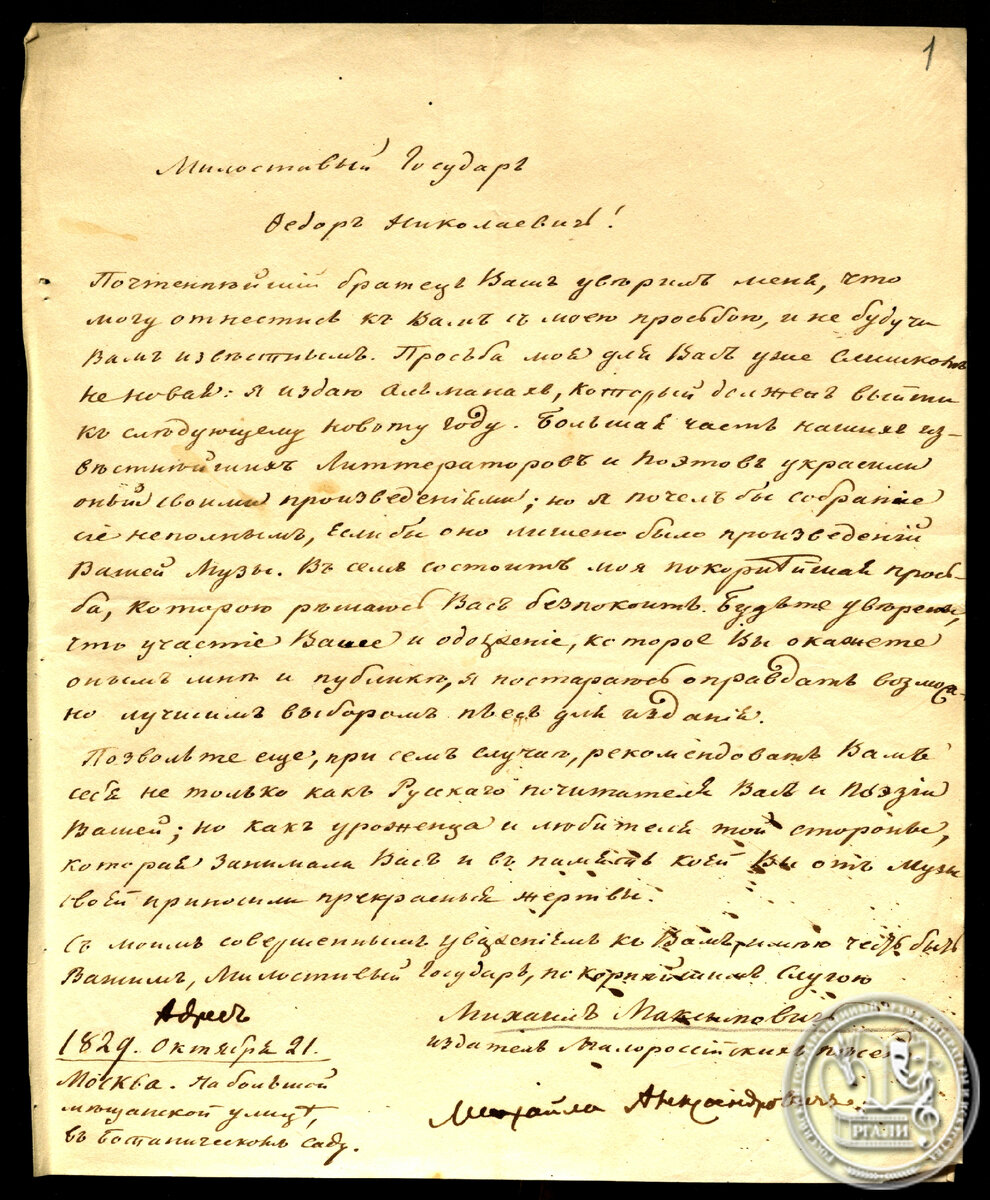 1
Милостивый Государь
Федоръ Николаевичь!
Почтеннѣйшій братецъ Вашъ увѣрилъ меня, что
могу отнестись къ Вамъ съ моею просьбою, и не будучи
Вамъ извѣстнымъ. Просьба моя для Васъ уже слишкомъ
не новая: я издаю Альманахъ, который долженъ выйти
къ слѣдующему новому году. Большая часть нашихъ из-
вѣстнѣйшихъ Литтераторовъ и Поэтовъ украсили
оный своими произведеніями; но я почелъ бы собраніе
сіе неполнымъ, если бы оно лишено было произведеній
Вашей Музы. Въ семъ состоитъ моя покорнѣйшая прось-
ба, которою рѣшаюсь Васъ безпокоить. Будьте увѣрены,
что участіе Ваше и одолженіе, которое Вы окажете
онымъ мнѣ и публикѣ, я постараюсь оправдать возмож-
но лучшимъ выборомъ пьесъ для изданія.
Позвольте еще, при семъ случаѣ, рекомендовать Вамъ
себя не только какъ Русскаго почитателя Васъ и Поэзіи
Вашей; но какъ уроженца и любителя той стороны,
которая занимала Васъ и въ память коей Вы отъ Музы
своей приносили прекрасныя жертвы.
Съ моимъ совершеннымъ уваженіемъ къ Вамъ имѣю честь быть
Вашимъ, Милостивый Государь, покорнѣйшимъ слугою
Михаилъ Максимовичь
издатель Малороссійскихъ пѣсень
Михайла Александровичь.
Адресъ
1829. Октября 21.
Москва. На большой
мѣщанской улицѣ,
въ ботаническомъ саду.
РГАЛИ